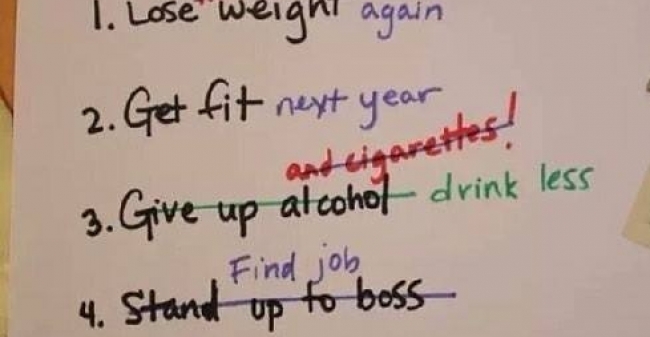 1. Lose weight again
2. Get fit next year
and cigarettes!
3. Give up alcohol drink less
Find job
4. Stand up to boss